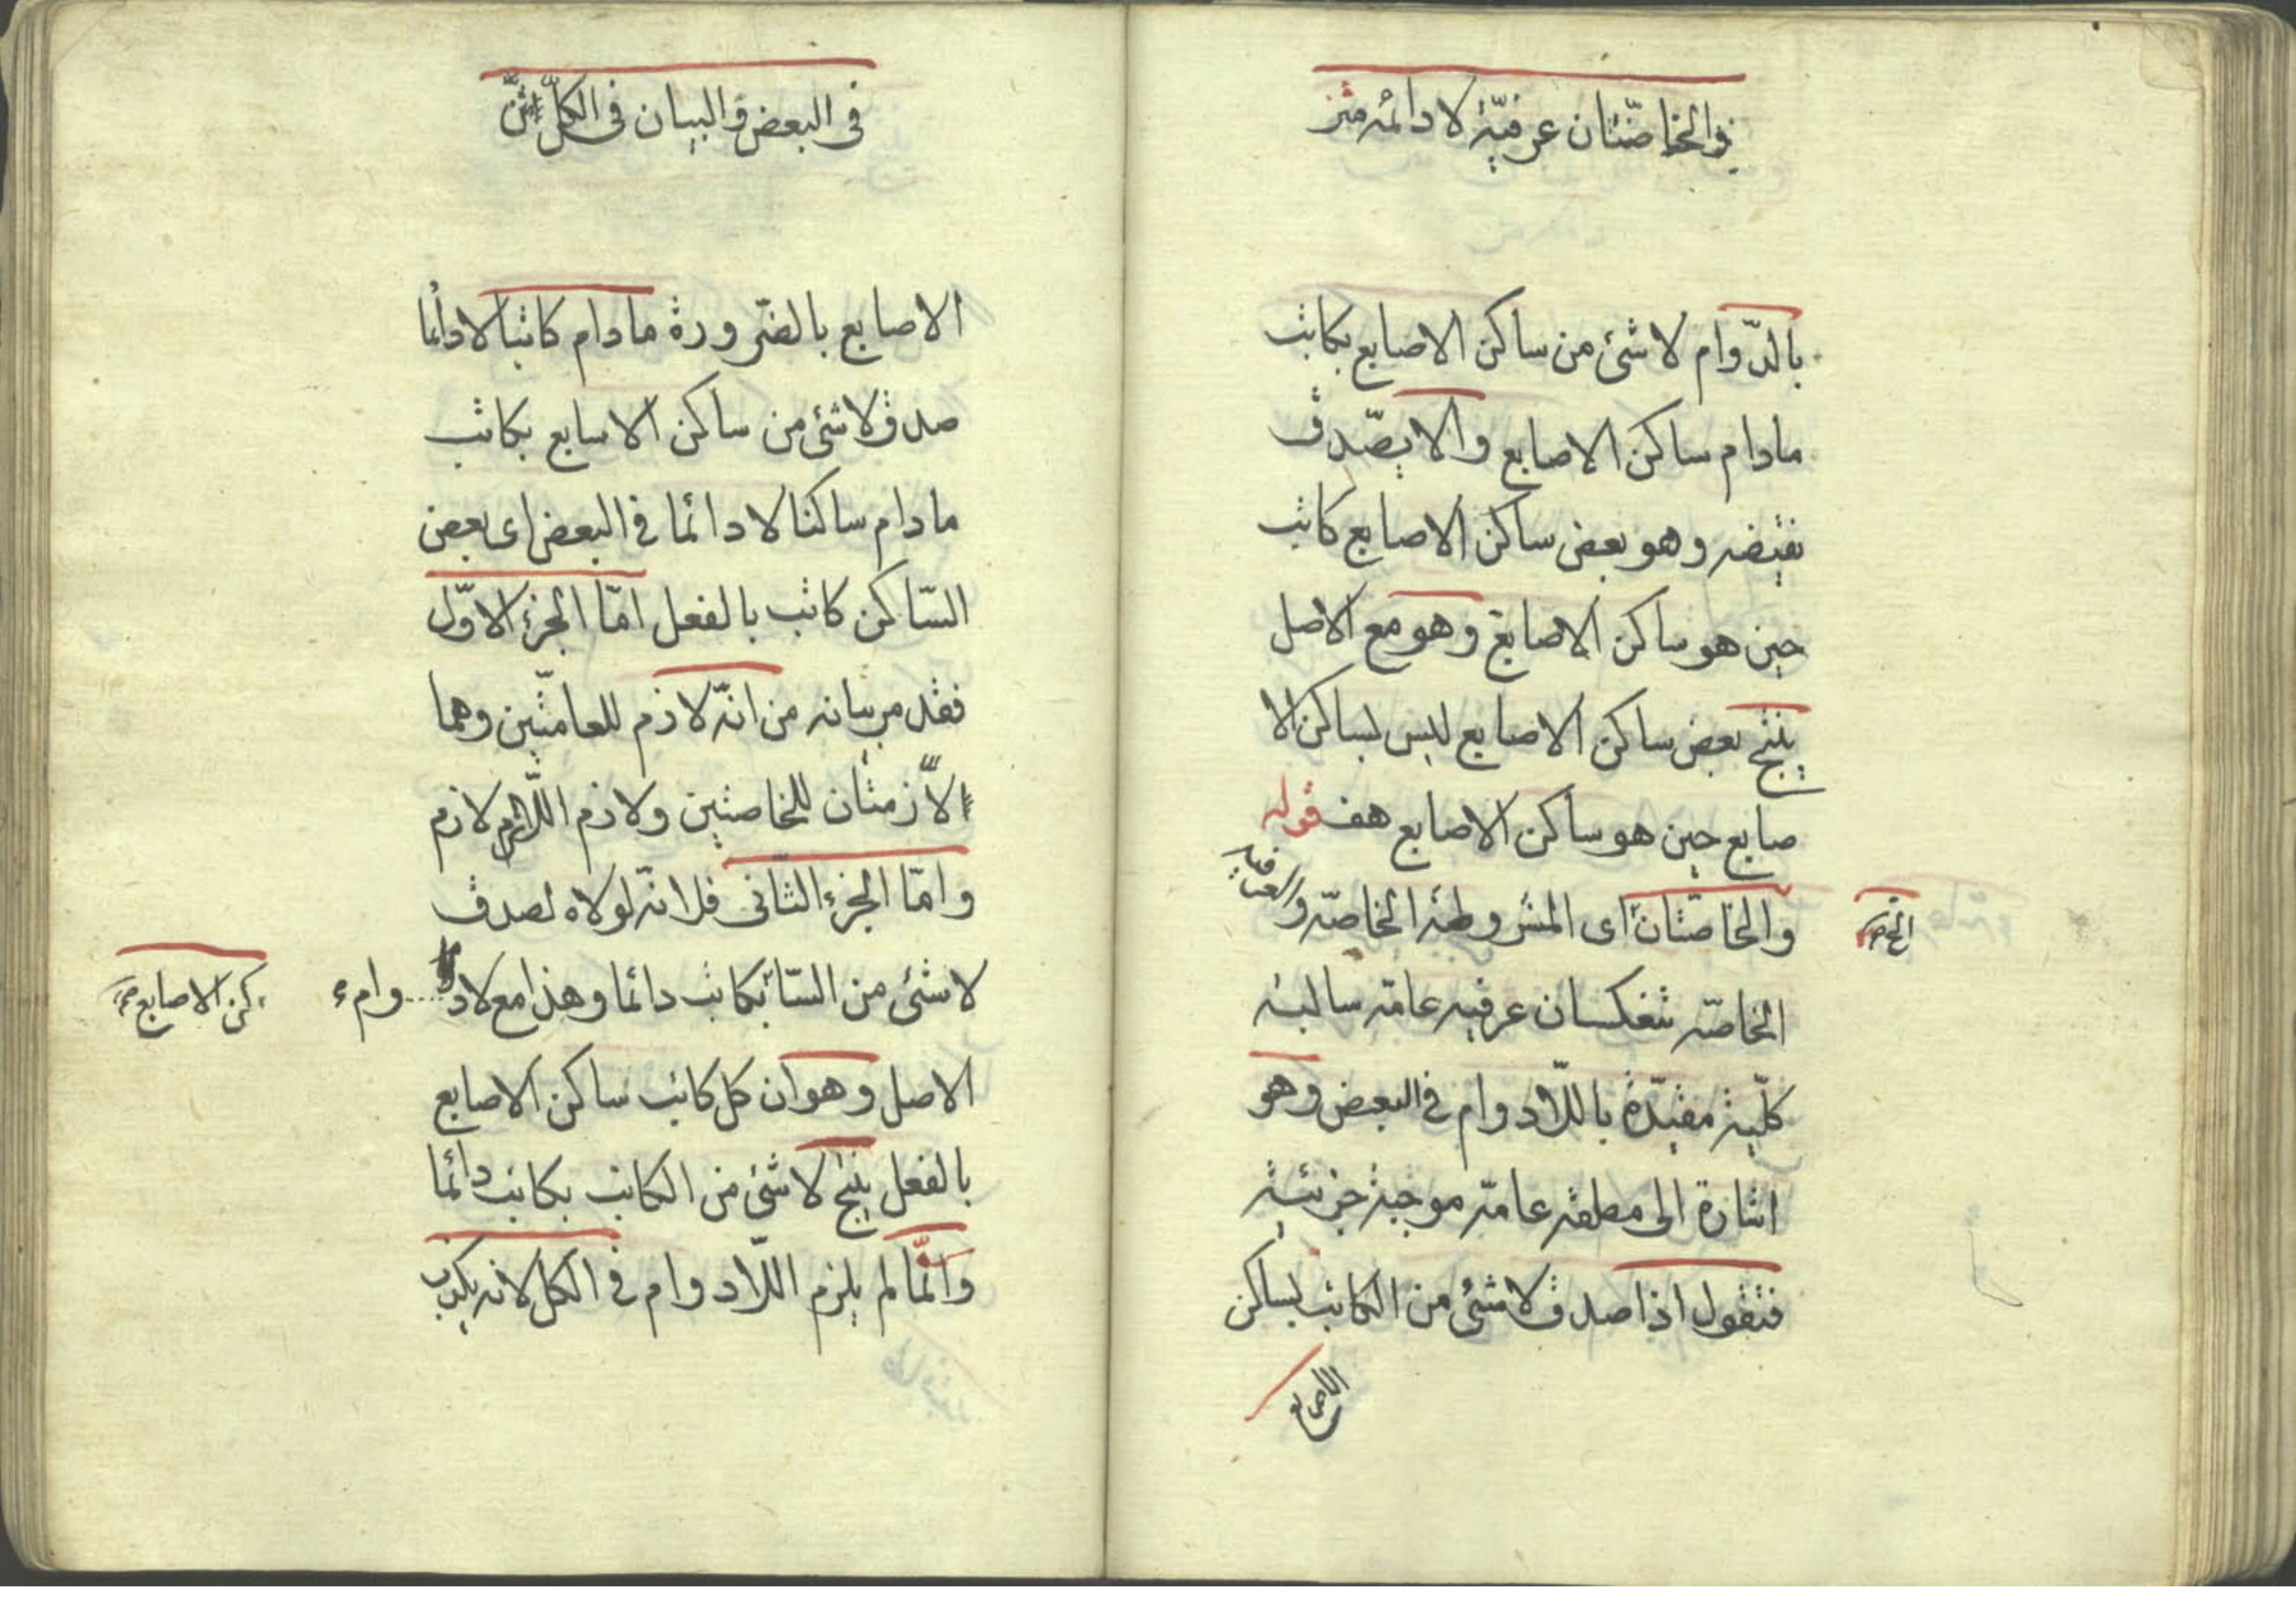 والخاصّتان عرفيّة لا دائمة متن
بالدّوام لا شئ من ساكن الاصابع بكاتب
مادام ساكن الاصابع والا يصّدق
نقيضه وهو بعض ساكن الاصابع كاتب
حين هو ساكن الاصابع وهو مع الاصل
ينتج بعض ساكن الاصابع ليس بساكن الا
صابع حين هو ساكن الاصابع هف قوله
والخاصّتان اى المشروطة الخاصّه والعرفيه
الخاصّه تنعكسان عرفيه عامّه سالبة
كلّية مقيّدة باللّادوام فى البعض وهو
اشارة الى مطلقه عامّه موجبة جزئية
فنقول اذا صدق لا شئ من الكاتب بساكن
الاصابع
فى البعض والبيان فى الكلّ
الاصابع بالضّرورة مادام كاتبا لا دائما
صدق لا شئ من ساكن الاسابع بكاتب
مادام ساكنا لا دائما فى البعض اى بعض
السّاكن كاتب بالفعل امّا الجزء الاوّل
فقد مر بيانه من انّه لازم للعامّتين وهما
لازمتان للخاصتين ولازم اللّازم لازم
وامّا الجزء الثّانى فلانّه لولاه لصدق
لا شئ من السّا بكاتب دائما وهذا مع لاد وام
كن الاصابع
الاصل وهو ان كل كاتب ساكن الاصابع
بالفعل ينتج لا شئ من الكاتب بكاتب دائما
وانّما لم يلزم اللّادوام فى الكل لانه يكذب